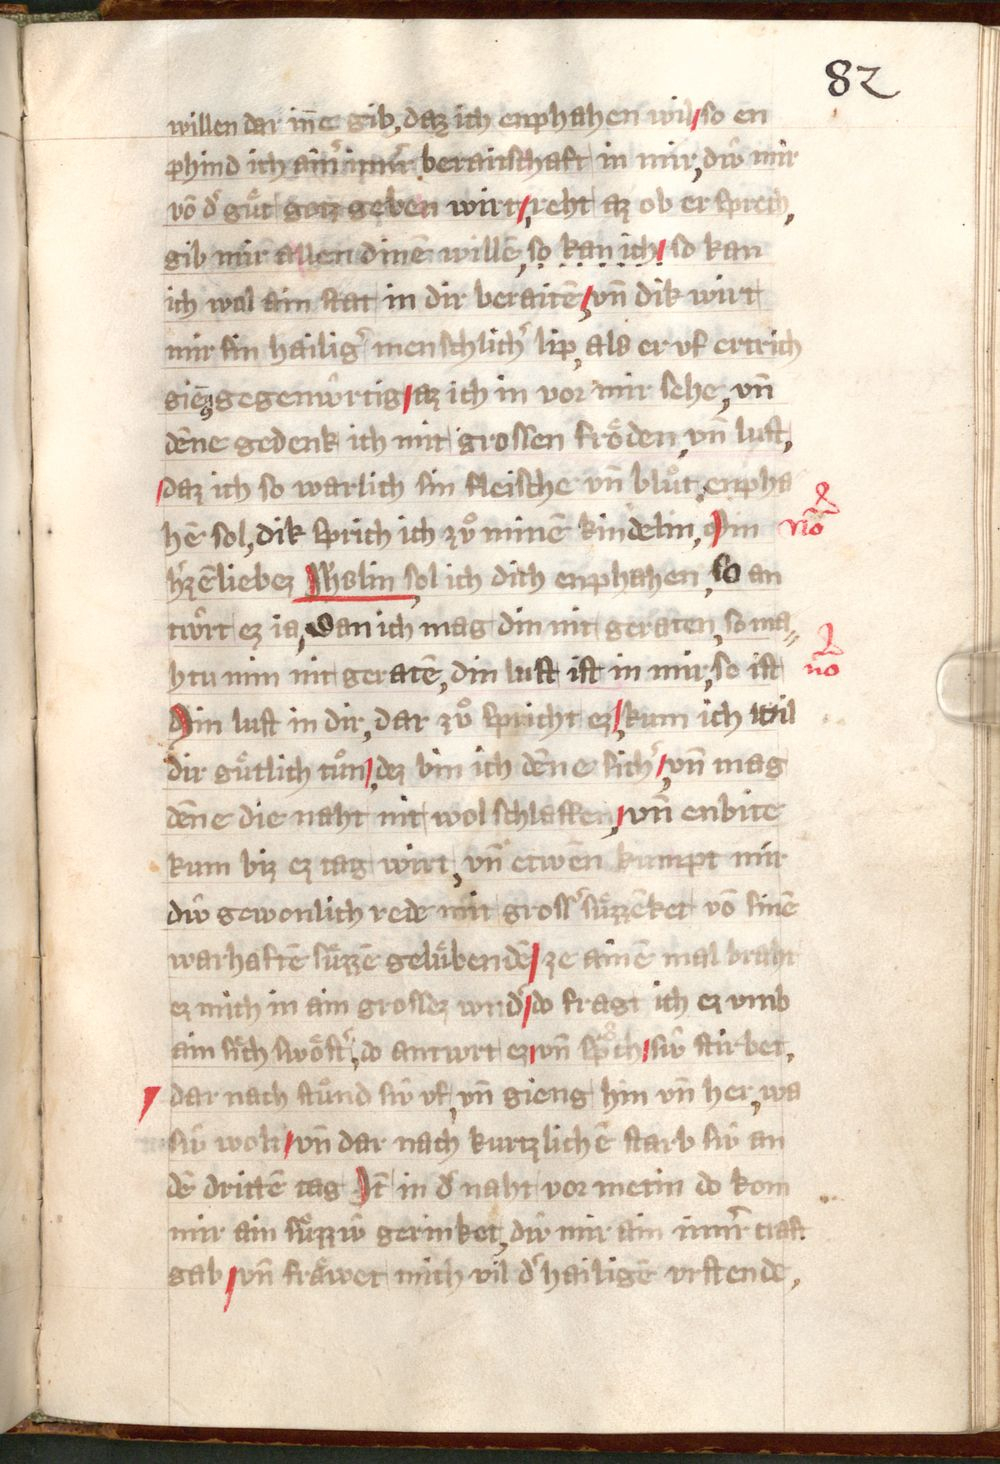 82
willen dar iñe gib, daz ich enphahen wil so en
phind ich ainͤ innͤ beraitschaft in mir, diu mir
võ dͤ guͤt gotz geben wirt, reht az ob er sprech,
gib mir allen dinē willē, so kan ich so kan
ich wol ain stat in dir beraitē, vñ dik wirt
mir sin hailigͤ menschlichͤ lip, als er vf ertrich
giēg gegenwrtig az ich in vor mir sehe, vñ
dēne gedenk ich mit grossen froͤden, vñ lust,
daz ich so warlich sin fleische vñ bluͦt enpha
hē sol, dik sprich ich zuͦ minē kindelin, Min
no
hͤzēliebez Jhslin sol ich dich enphahen, so an
twrt ez ia, wan ich mag din nit geraten, so ma
htu min nit geratē, din lust ist in mir, so ist
no
Min lust in dir, dar zuͦ spricht ez, kum ich wil
dir guͤtlich tuͦn, dez bin ich dēne sichͤ, vñ mag
dēne die naht nit wol schlaffen, vñ enbite
kum biz ez tag wirt, vñ etwēn kumpt mir
diu gewonlich rede mit grossͤ suͤzzēket võ sinē
warhaftē suͤzzē geluͤbendē ze ainē mal braht
ez mich in ain grossez wndͤ do fragt ich ez vmb
ain sich swoͤstͤ, do antwrt ez vñ spͣch siu stirbet,
dar nach stuͦnd siu vf, vñ gieng hin vñ her, wa
siu wolt vñ dar nach kurtzlichē starb siu an
dē drittē tag Jt̄ in dͤ naht vor metin do kom
mir ain suͤzziu gerinket, diu mir ain innͤ craft
gab vñ fraͤwet mich vil dͤ hailigē vrstende,